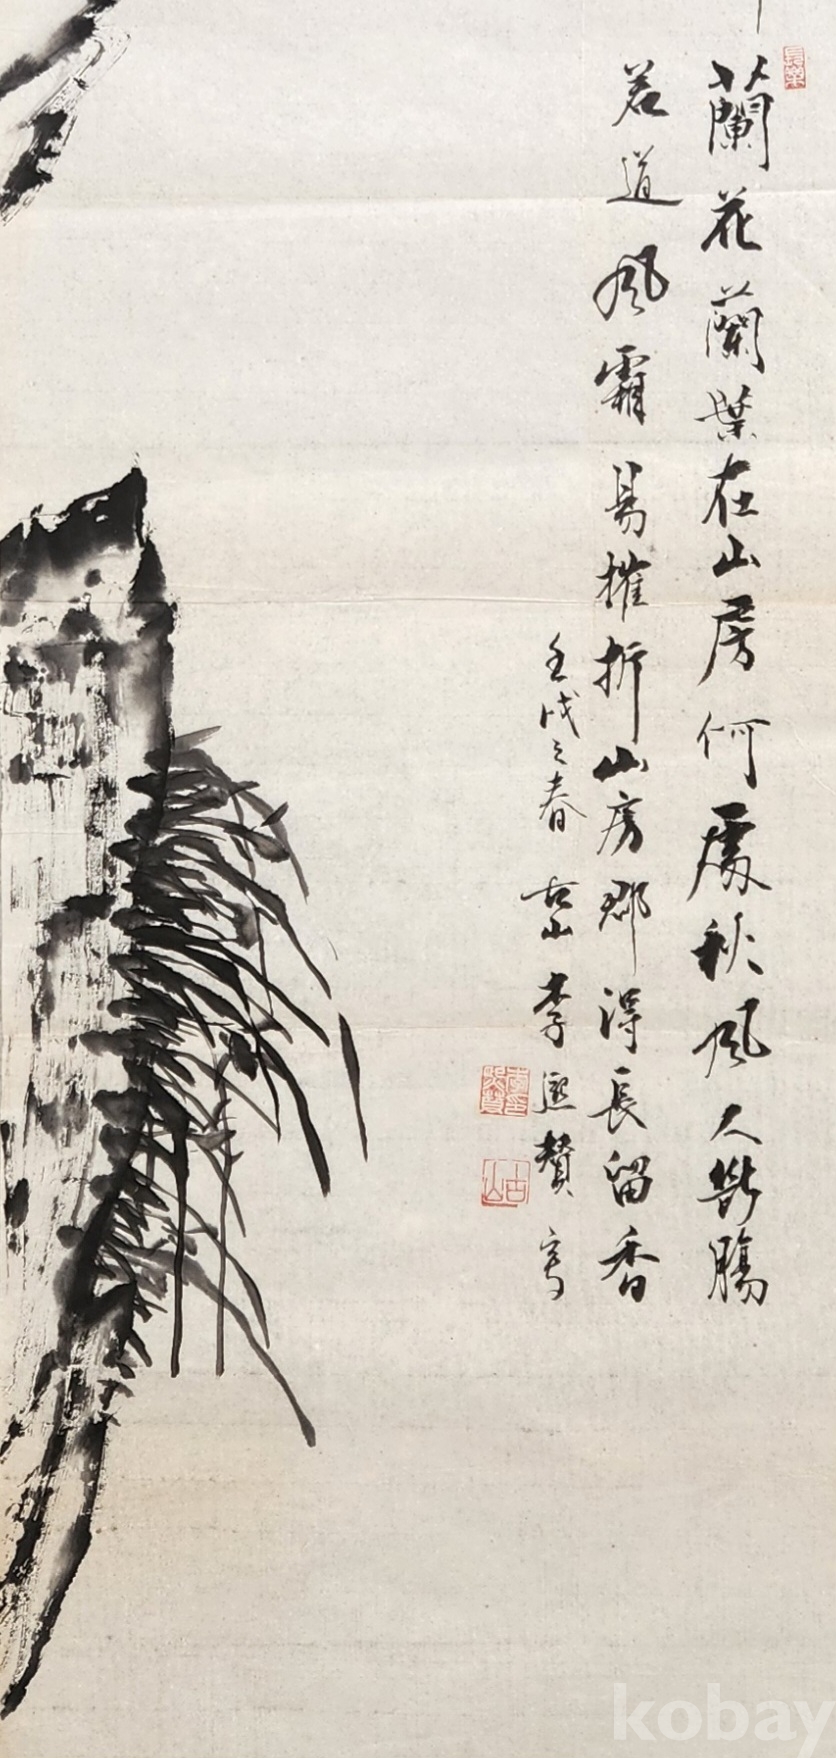 長樂
蘭花蘭葉在山房何處秋風人斷腸
若道風霜易摧折山房那得長留香
壬戌之春 古山 李熙贊 寫
古山
kobay